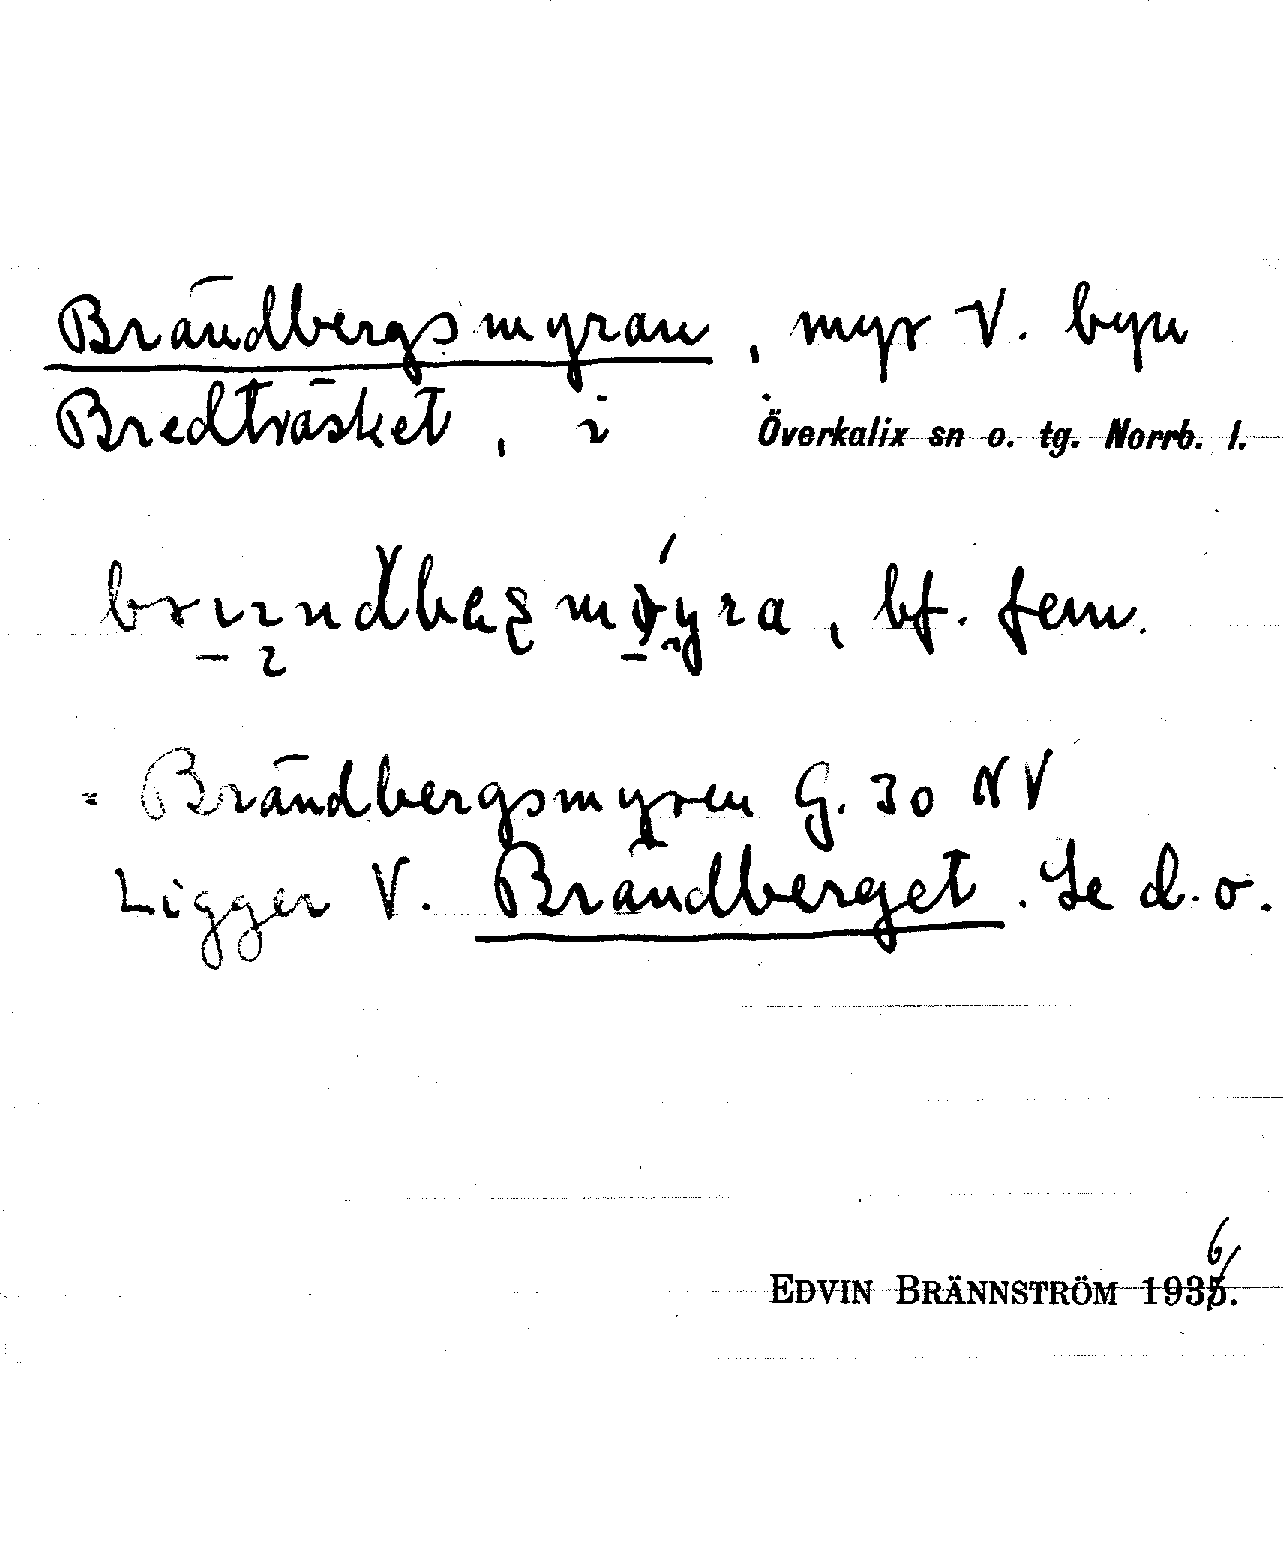 Brändbergsmyran, myr V. byn
Bredträsket, i Överkalix sn o. tg. Norrb. l.
bf. fem.
= Brändbergsmyren G. 30 NV
Ligger V. Brändberget. Se d. o.
EDVIN BRÄNNSTRÖM 1936.